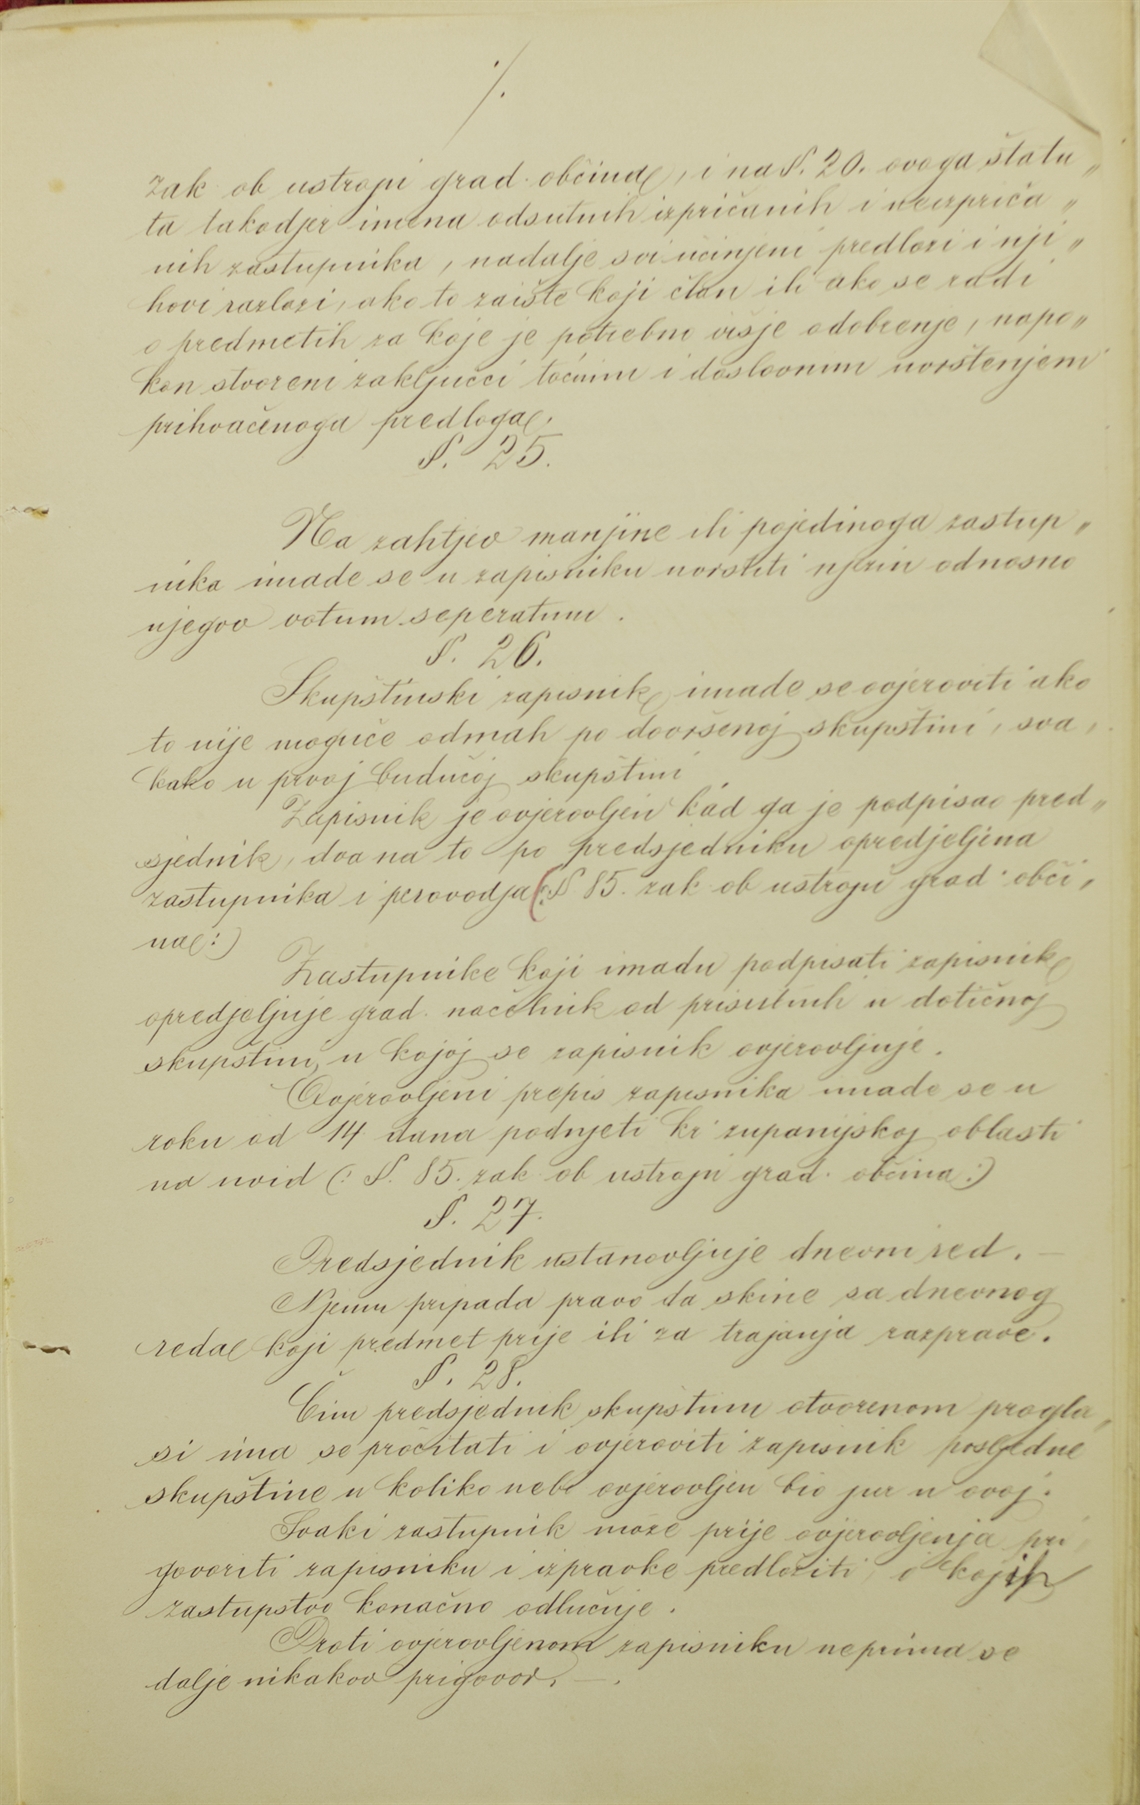 ./.
zak ob ustroju grad. občina, i na §. 20. ovoga štatu„
ta takodjer imena odsutnih izpričanih i neizpriča„
nih zastupnika, nadalje svi učinjeni predlozi i nji„
hovi razlozi, ako to zaište koji član ili ako se radi
o predmetih za koje je potrebno višje odobrenje, napo„
kon stvoreni zaključci točnim i doslovnim uvrštenjem
prihvaćenoga predloga.
§. 25.
Na zahtjev manjine ili pojedinoga zastup„
nika imade se u zapisniku uvrstiti njezin odnosno
njegov votum seperatum.
§. 26.
Skupštinski zapisnik imade se ovjeroviti ako
to nije moguče odmah po dovršenoj skupštini, sva„
kako u prvoj budućoj skupštini
Zapisnik je ovjerovljen kad ga je podpisao pred„
sjednik, dva na to po predsjedniku opredjeljena
zastupnika i perovodja (:§ 85. zak ob ustroju grad. obči„
na:)
Zastupnike koji imadu podpisati zapisnik
opredjeljuje grad. načelnik od prisutnih u dotičnoj
skupštini, u kojoj se zapisnik ovjerovljuje.
Ovjerovljeni prepis zapisnika imade se u
roku od 14 dana podnjeti kr županijskoj oblasti
na uvid (: §. 85. zak ob ustroju grad. občina:)
§. 27.
Predsjednik ustanovljuje dnevni red. —
Njemu pripada pravo da skine sa dnevnog
reda koji predmet prije ili za trajanja razprave.
§. 28.
Čim predsjednik skupštinu otvorenom progla„
si ima se pročitati i ovjeroviti zapisnik posljedne
skupštine u koliko nebi ovjerovljen bio jur u ovoj.
Svaki zastupnik može prije ovjerovljenja pri„
govoriti zapisniku i izpravke predložiti, o kojih
zastupstvo konačno odlučuje.
Proti ovjerovljenom zapisniku neprima se
dalje nikakov prigovor. —.